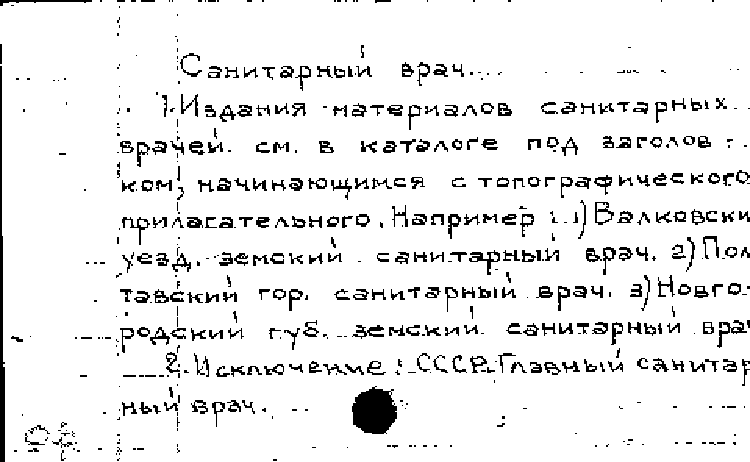 Санитарный врач.
1. Издания материалов санитарных
врачей. см. в каталоге под заголов-
ком, начинающимся с топографического
прилагательного. Например: 1) Валковский
уезд. земский санитарный врач. 2) Пол-
тавский гор. санитарный врач. 3) Новго-
родский губ. земский санитарный врач
2. Исключение: СССР. Главный санитар-
ный врач.